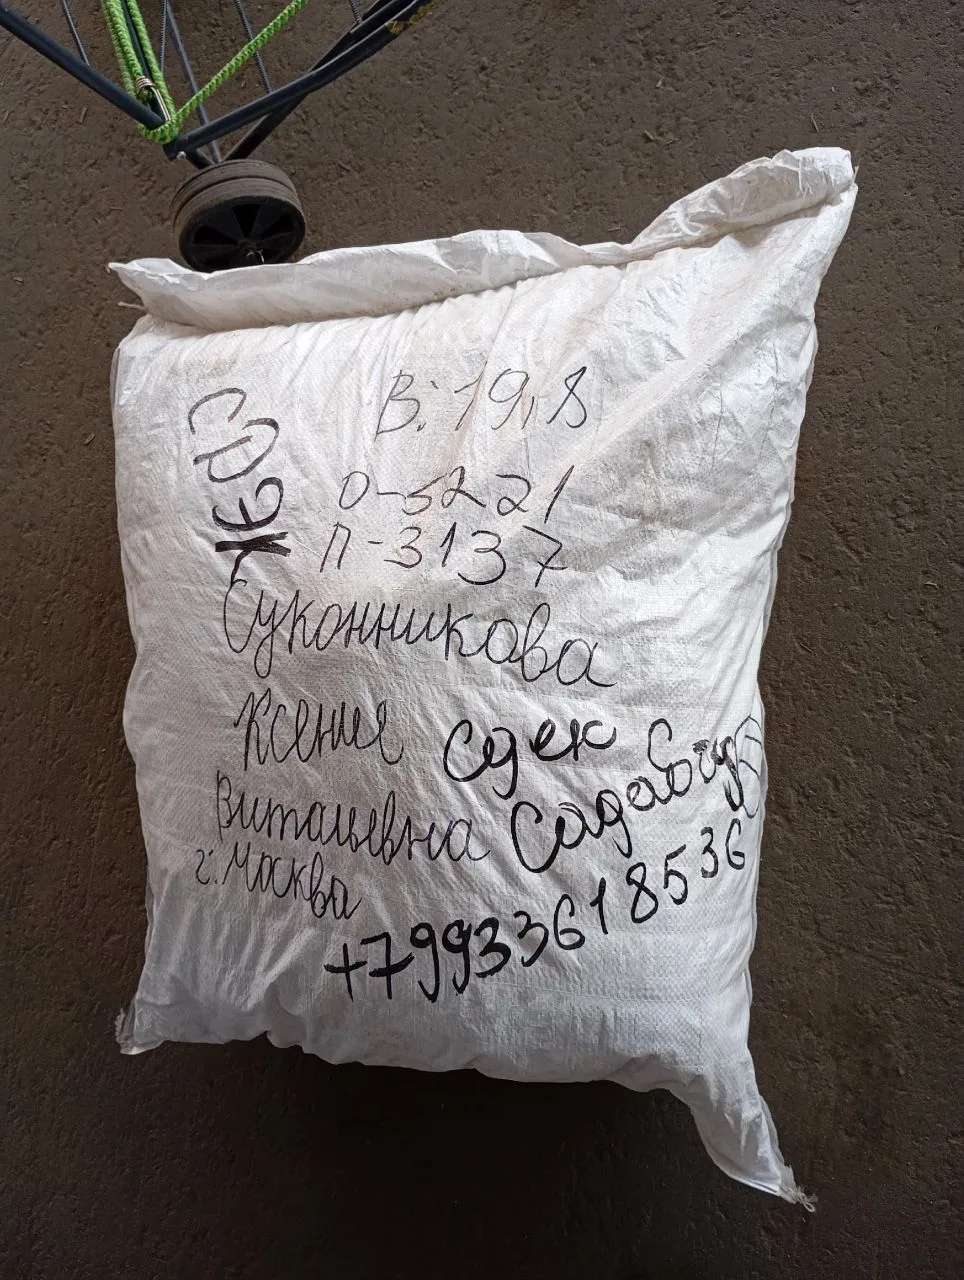 В: 19,8
О-5221
П-3137
Суконникова
Ксения
Сдек
Витальевна
Садавод
г. Москва
+79933618536